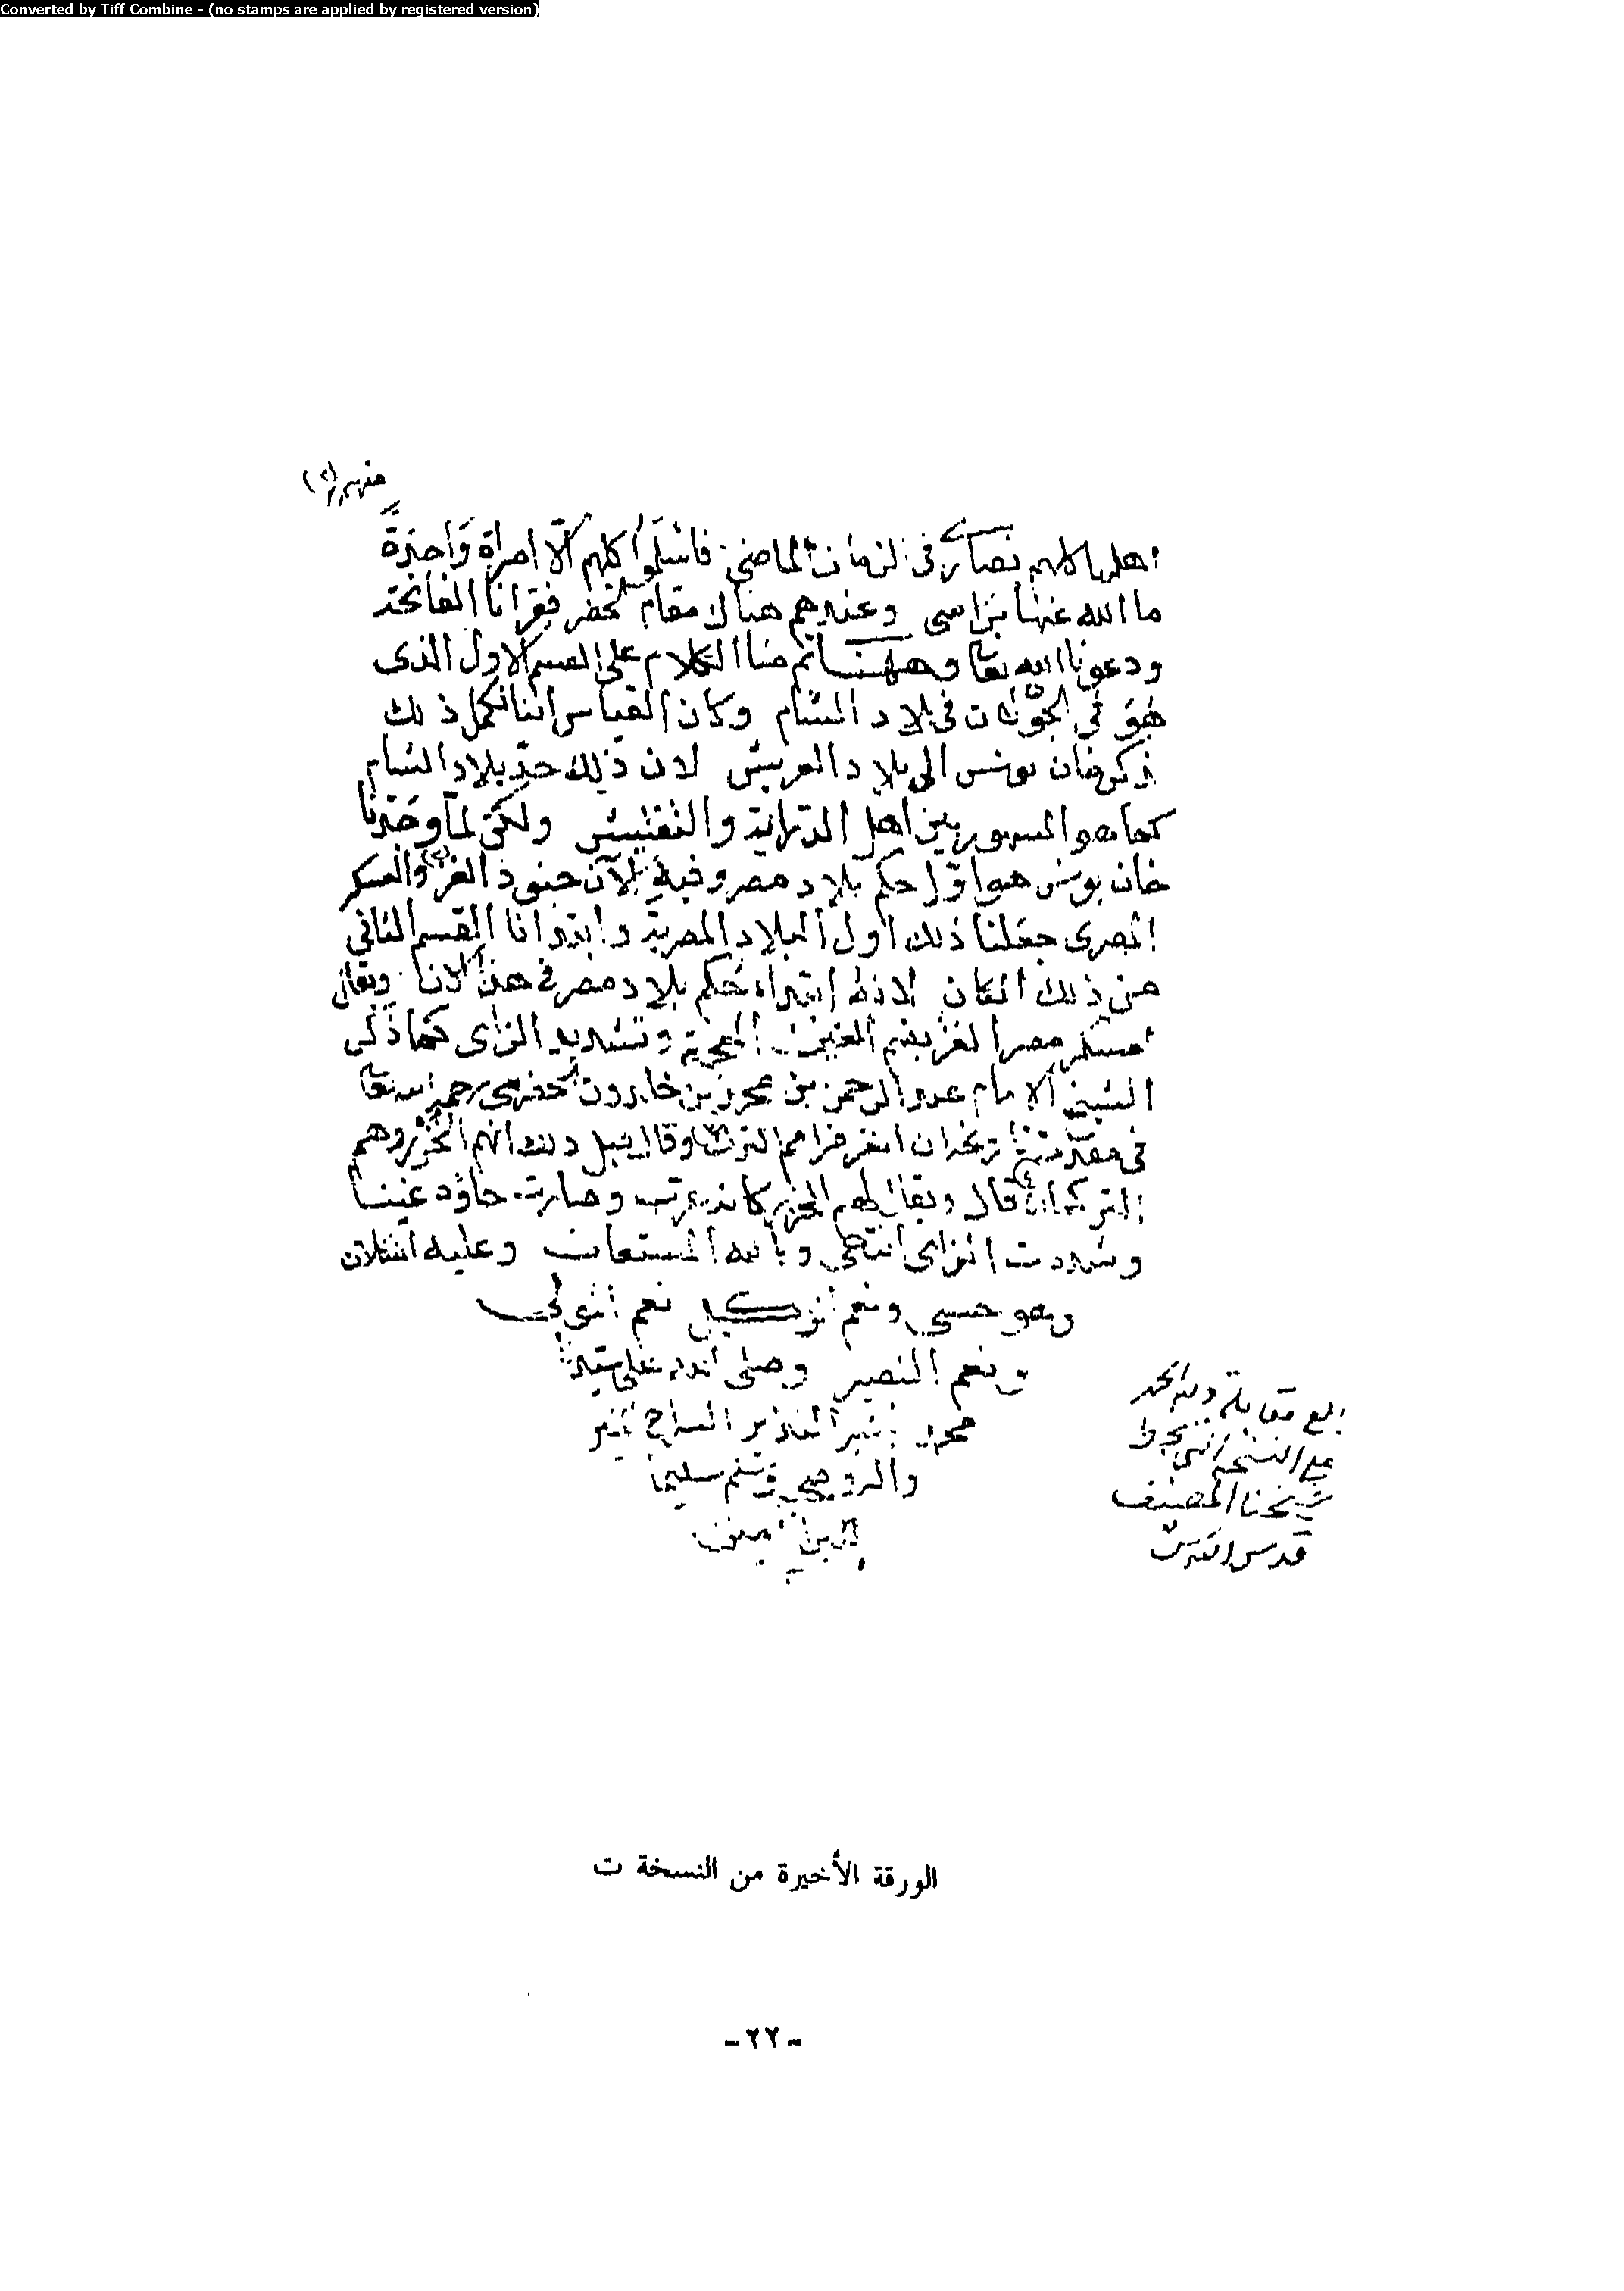 Converted by Tiff Combine - (no stamps are applied by registered version)
منهم
اهلها كلهم نصارى فى الزمان الماضى فاسلموا كلهم الا امراة واحدة
ما الله عنها براسى وعندهم هناك مقام الخضر فقرانا الفاتحة
ودعونا الله تعا وههنا تم منا الكلام على القسم الاول الذى
هو فى الجولان فى بلاد الشام وكان القياس اننا نكمل ذلك
خان يونس الى بلاد العريش لان ذلك حد بلاد الشام
كما هو المشهور بين اهل الدراية والتفتيش ولكن لما وجدنا
خان يونس هو اول حكم بلاد مصر وفيه الآن جنود الغز والعسكر
المصرى جعلنا ذلك اول البلاد المصرية وابتدانا القسم الثانى
من ذلك المكان لانه ابتداء حكم بلاد مصر فى هذا الآن ويقال
لعسكر مصر الغز بضم الغين المعجمة وتشديد الزاى كما ذكر
الشيخ الامام عبد الرحمن بن محمد بن خلدون الحضرمى رحمه الله تعا
فى مقدمة تاريخه ان الغز من امم الترك وقال قبل ذلك انهم الخزر وهم
التركمان قال ويقال لهم الخزر كانه عرب وصارت خاؤه غينا
وشددت الزاى انتهى وبالله المستعان وعليه التكلان
وهو حسبى ونعم الوكيل نعم المولى
ونعم النصير وصلى الله على سيدنا
محمد البشير النذير السراج المنير
واله وصحبه وسلم تسليما
امين
بلغ مقابلة ولله الحمد
على النسخة التى بخط
شيخنا المصنف
قدس الله سره
الورقة الأخيرة من النسخة ت
-٢٢-